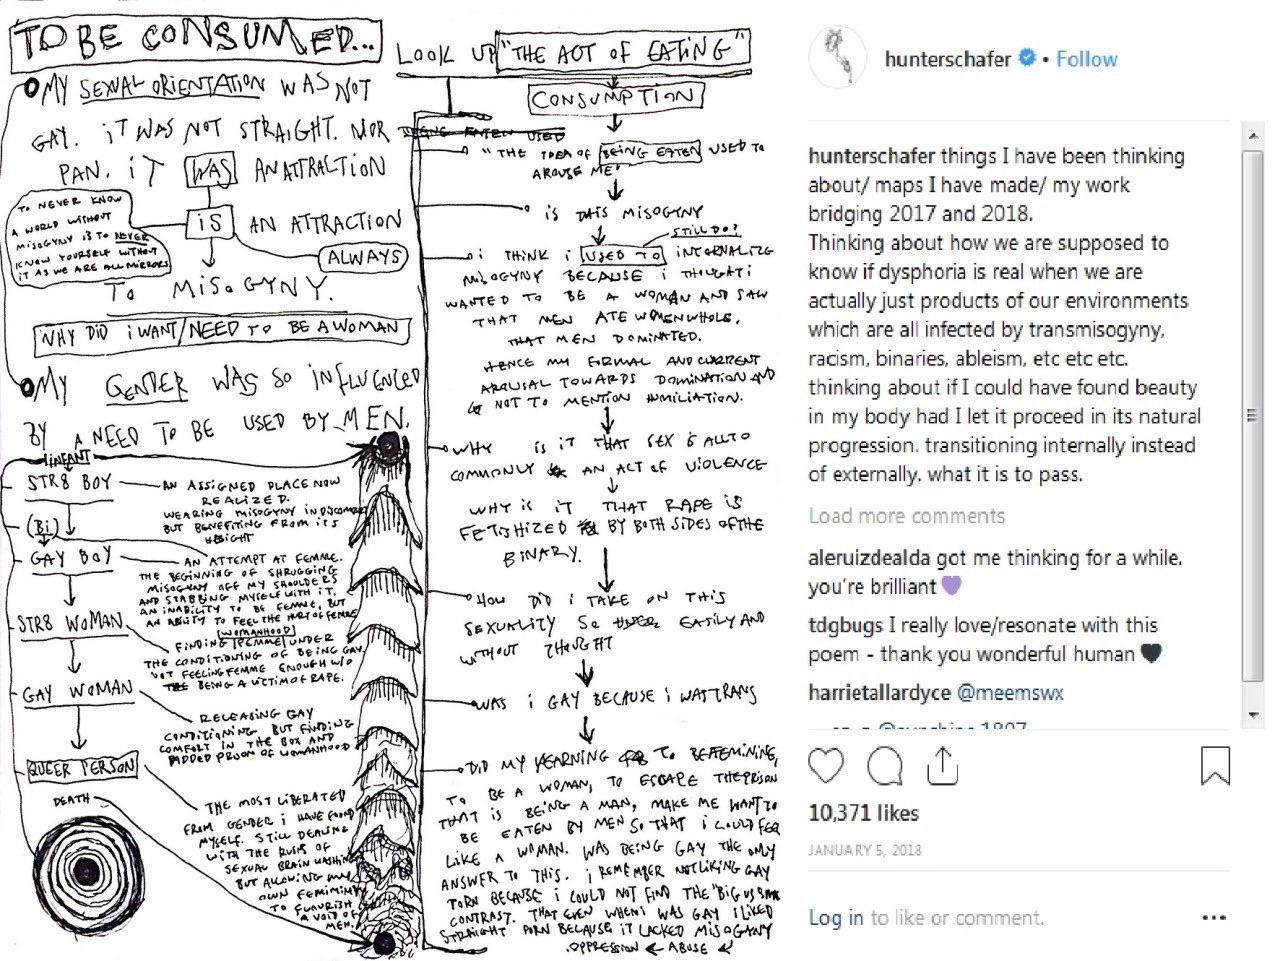 TO BE CONSUMED...
MY SEXUAL ORIENTATION WAS NOT
GAY. iT WAS NOT STRAIGHT. NOR
PAN. iT WAS AN ATTRACTION
iS AN ATTRACTION
ALWAYS
TO NEVER KNOW
A WORLD WITHOUT
MISOGYNY IS TO NEVER
KNOW YOURSELF WITHOUT
IT AS WE ARE ALL MIRRORS
TO MISOGYNY.
WHY DID i WANT/NEED TO BE A WOMAN
MY GENDER WAS SO INFLUENCED
BY A NEED TO BE USED BY MEN.
INFANT
STR8 BOY
AN ASSIGNED PLACE NOW
REALIZED.
WEARING MISOGYNY IN DISCOMFORT
BUT BENEFITING FROM ITS
(Bi)
GAY BOY
AN ATTEMPT AT FEMME.
THE BEGINNING OF SHRUGGING
MISOGYNY OFF MY SHOULDERS
AND STABBING MYSELF WITH IT.
AN INABILITY TO BE FEMME, BUT
AN ABILITY TO FEEL THE HURT OF FEMME
STR8 WOMAN
WOMANHOOD
FINDING FEMME UNDER
THE CONDITIONING OF BEING GAY.
NOT FEELING FEMME ENOUGH W/O
BEING A VICTIM OF RAPE.
GAY WOMAN
RELEASING GAY
CONDITIONING BUT FINDING
COMFORT IN THE BOX AND
ADDED PROOF OF WOMANHOOD
QUEER PERSON
THE MOST LIBERATED
FROM GENDER i HAVE FOUND
MYSELF. STILL DEALING
WITH THE RUINS OF
SEXUAL BRAIN WASHING
BUT ALLOWING MY
OWN FEMININITY
TO FLOURISH
A VOID OF
MEN.
DEATH
LOOK UP "THE ACT OF EATING"
CONSUMPTION
BEING EATEN USED
"THE IDEA OF BEING EATEN USED TO
AROUSE ME"
iS THIS MISOGYNY
STILL DO?
i THINK i USED TO INTERNALIZE
MISOGYNY BECAUSE i THOUGHT i
WANTED TO BE A WOMAN AND SAW
THAT MEN ATE WOMEN WHOLE.
THAT MEN DOMINATED.
HENCE MY FORMAL AND CURRENT
AROUSAL TOWARDS DOMINATION AND
NOT TO MENTION HUMILIATION.
WHY IS iT THAT SEX is ALL TO
COMMONLY AN ACT OF VIOLENCE
WHY IS iT THAT RAPE IS
FETISHIZED BY BOTH SIDES OF THE
BINARY.
HOW DID i TAKE ON THIS
SEXUALITY SO EASILY AND
WITHOUT THOUGHT
WAS i GAY BECAUSE i WAS TRANS
DID MY YEARNING TO BE FEMININE,
TO BE A WOMAN, TO ESCAPE THE PRISON
THAT IS BEING A MAN, MAKE ME WANT TO
BE EATEN BY MEN SO THAT i COULD FEEL
LIKE A WOMAN. WAS BEING GAY THE ONLY
ANSWER TO THIS. i REMEMBER NOT LIKING GAY
PORN BECAUSE i COULD NOT FIND THE "BIG VS SMALL
CONTRAST. THAT EVEN WHEN i WAS GAY i LIKED
STRAIGHT PORN BECAUSE iT LACKED MISOGYNY
OPPRESSION ← ABUSE
hunterschafer • Follow
hunterschafer things I have been thinking
about/ maps I have made/ my work
bridging 2017 and 2018.
Thinking about how we are supposed to
know if dysphoria is real when we are
actually just products of our environments
which are all infected by transmisogyny,
racism, binaries, ableism, etc etc etc.
thinking about if I could have found beauty
in my body had I let it proceed in its natural
progression. transitioning internally instead
of externally. what it is to pass.
Load more comments
aleruizdealda got me thinking for a while.
you're brilliant💜
tdgbugs I really love/resonate with this
poem - thank you wonderful human🖤
harrietallardyce @meemswx
10,371 likes
JANUARY 5, 2018
Log in to like or comment.